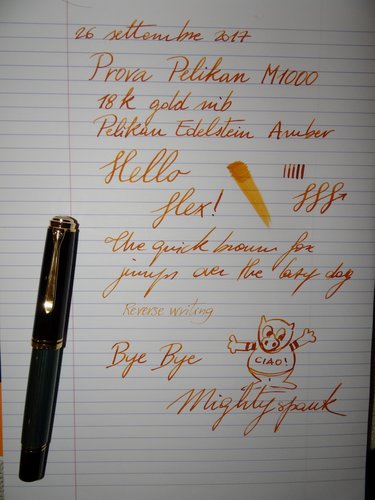 26 settembre 2017
Prova Pelikan M1000
18k gold nib
Pelikan Edelstein Amber
Hello
flex!
the quick brown fox
jumps over the lazy dog
Reverse writing
Bye Bye
CIAO!
Mightyspank